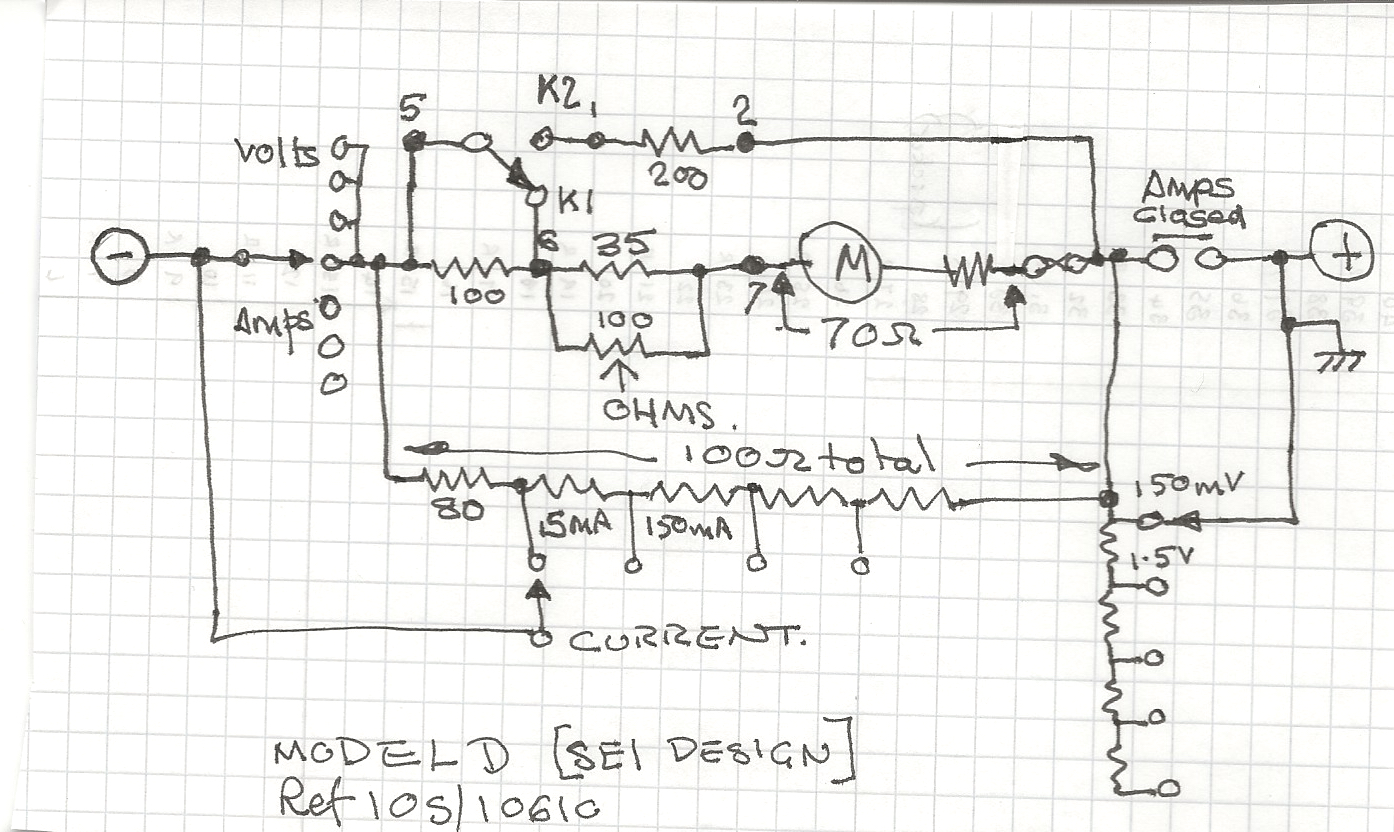 K2,
5
2
volts
200
K1
Amps
closed
-
6
35
M
+
100
7
Amps
100
70Ω
OHMS.
100Ω total
80
15mA
150mA
150mV
1.5V
CURRENT.
MODEL D [SEI DESIGN]
Ref 10S/10610